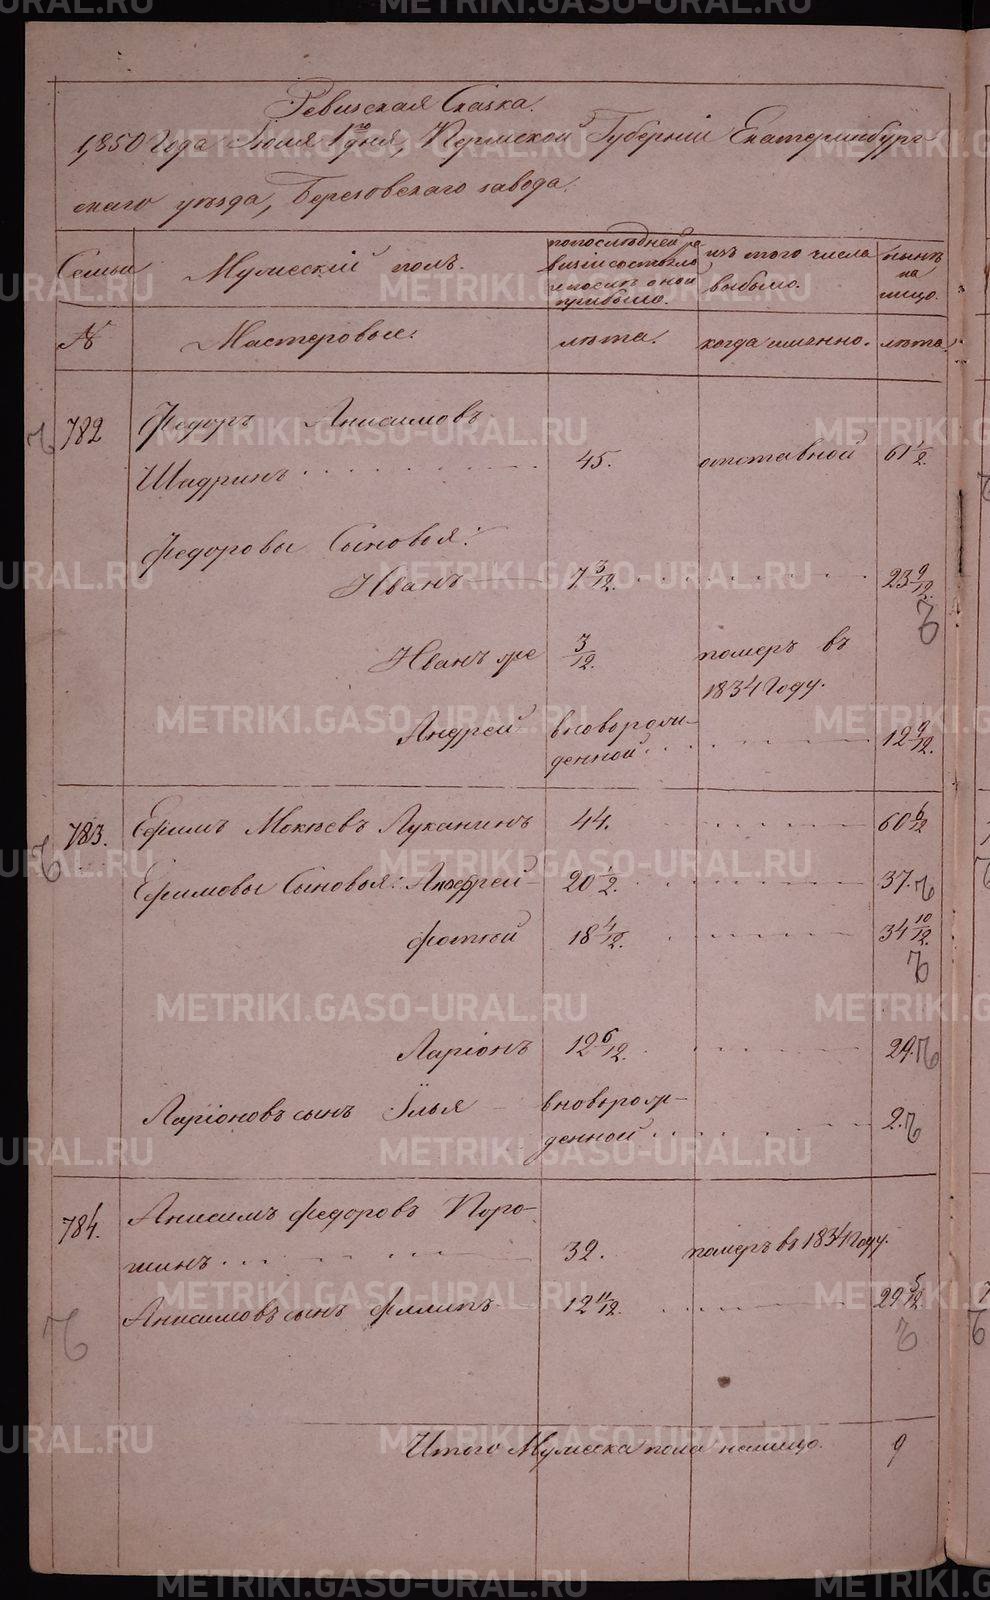 Ревизская Сказка.
1850 Года Іюля 1го дня, Пермской Губерніи Екатеринбург-
скаго уѣзда, Березовскаго завода.
Семьи
Мужескій полъ.
по последней ре-
визіи состояло
и после оной
прибыло.
изъ того числа
выбыло.
нынѣ
на
лицо.
№
Мастеровые:
лѣта.
когда именно.
лѣта.
782
Федоръ Анисимовъ
Шадринъ
45.
отставной
61 1/2.
Федоровы Сыновья:
Иванъ
7 3/12.
23 9/12.
Иванъ же
3/12.
померъ въ
1834 Году.
Андрей
вноворож-
денной
12 9/12.
783.
Ефимъ Мокѣевъ Луканинъ
44.
60 6/12
Ефимовы Сыновья: Андрей
20 1/2.
37.
Фотий
18 4/12.
34 10/12.
Ларіонъ
12 6/12.
29.
Ларіоновъ сынъ Илья
вноворож-
денной
2.
784.
Анисимъ Федоровъ Поро-
шинъ
32.
померъ въ 1834 Году.
Анисимовъ сынъ Филипъ
12 11/12.
29 5/12.
Итого Мужеска пола налицо.
9
METRIKI.GASO-URAL.RU